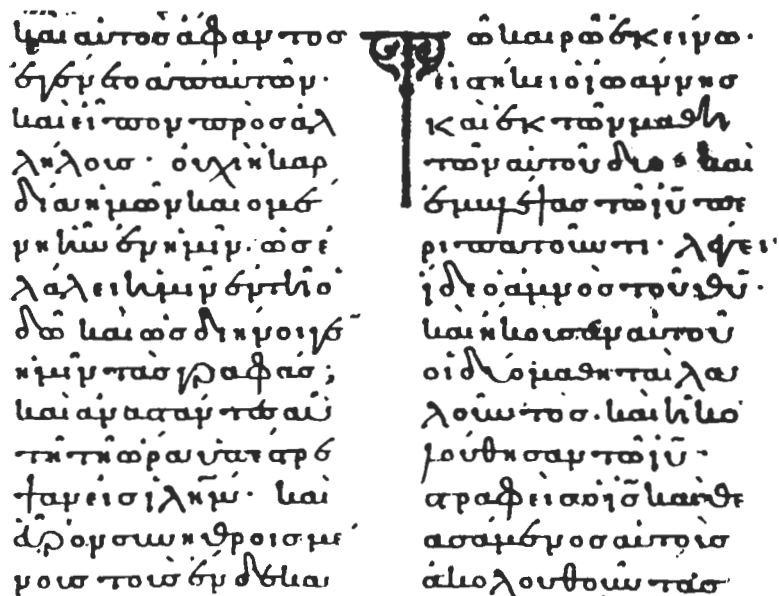 καὶ αὐτὸς ἄφαντος
ἐγένετο ἀπαὐτῶν·
καὶ εἶπον πρὸς ἀλ
λήλους· οὐχὶ ἡ καρ
δία ἡμῶν καιομέ
νη ἦν ἐν ἡμῖν· ὡς ἐ
λάλει ἡμῖν ἐν τῆ ὁ
δῶ καὶ ὡς διήνοιγε
ἡμῖν τὰς γραφάς;
καὶ ἀναστάντες αὐ
τῆ τῆ ὥρα ὑπέστρε
ψαν εἰς ἰλη̅μ· καὶ
εὗρον συνηθροισμέ
νους τοὺς ἕνδεκα
Τῶ καιρῶ ἐκείνω·
εἰστήκει ὁ ἰωάννης
καὶ ἐκ τῶν μαθη
τῶν αὐτοῦ δύο· καὶ
ἐμβλέψας τῶ ἰυ̅ πε
ριπατοῦντι· λέγει·
ἴδε ὁ ἀμνὸς τοῦ θυ̅·
καὶ ἤκουσαν αὐτοῦ
οἱ δύο μαθηταὶ λα
λοῦντος· καὶ ἠκο
λούθησαν τῶ ἰυ̅·
στραφεὶς ὁ ἰς̅ καὶ θε
ασάμενος αὐτοὺς
ἀκολουθοῦντας